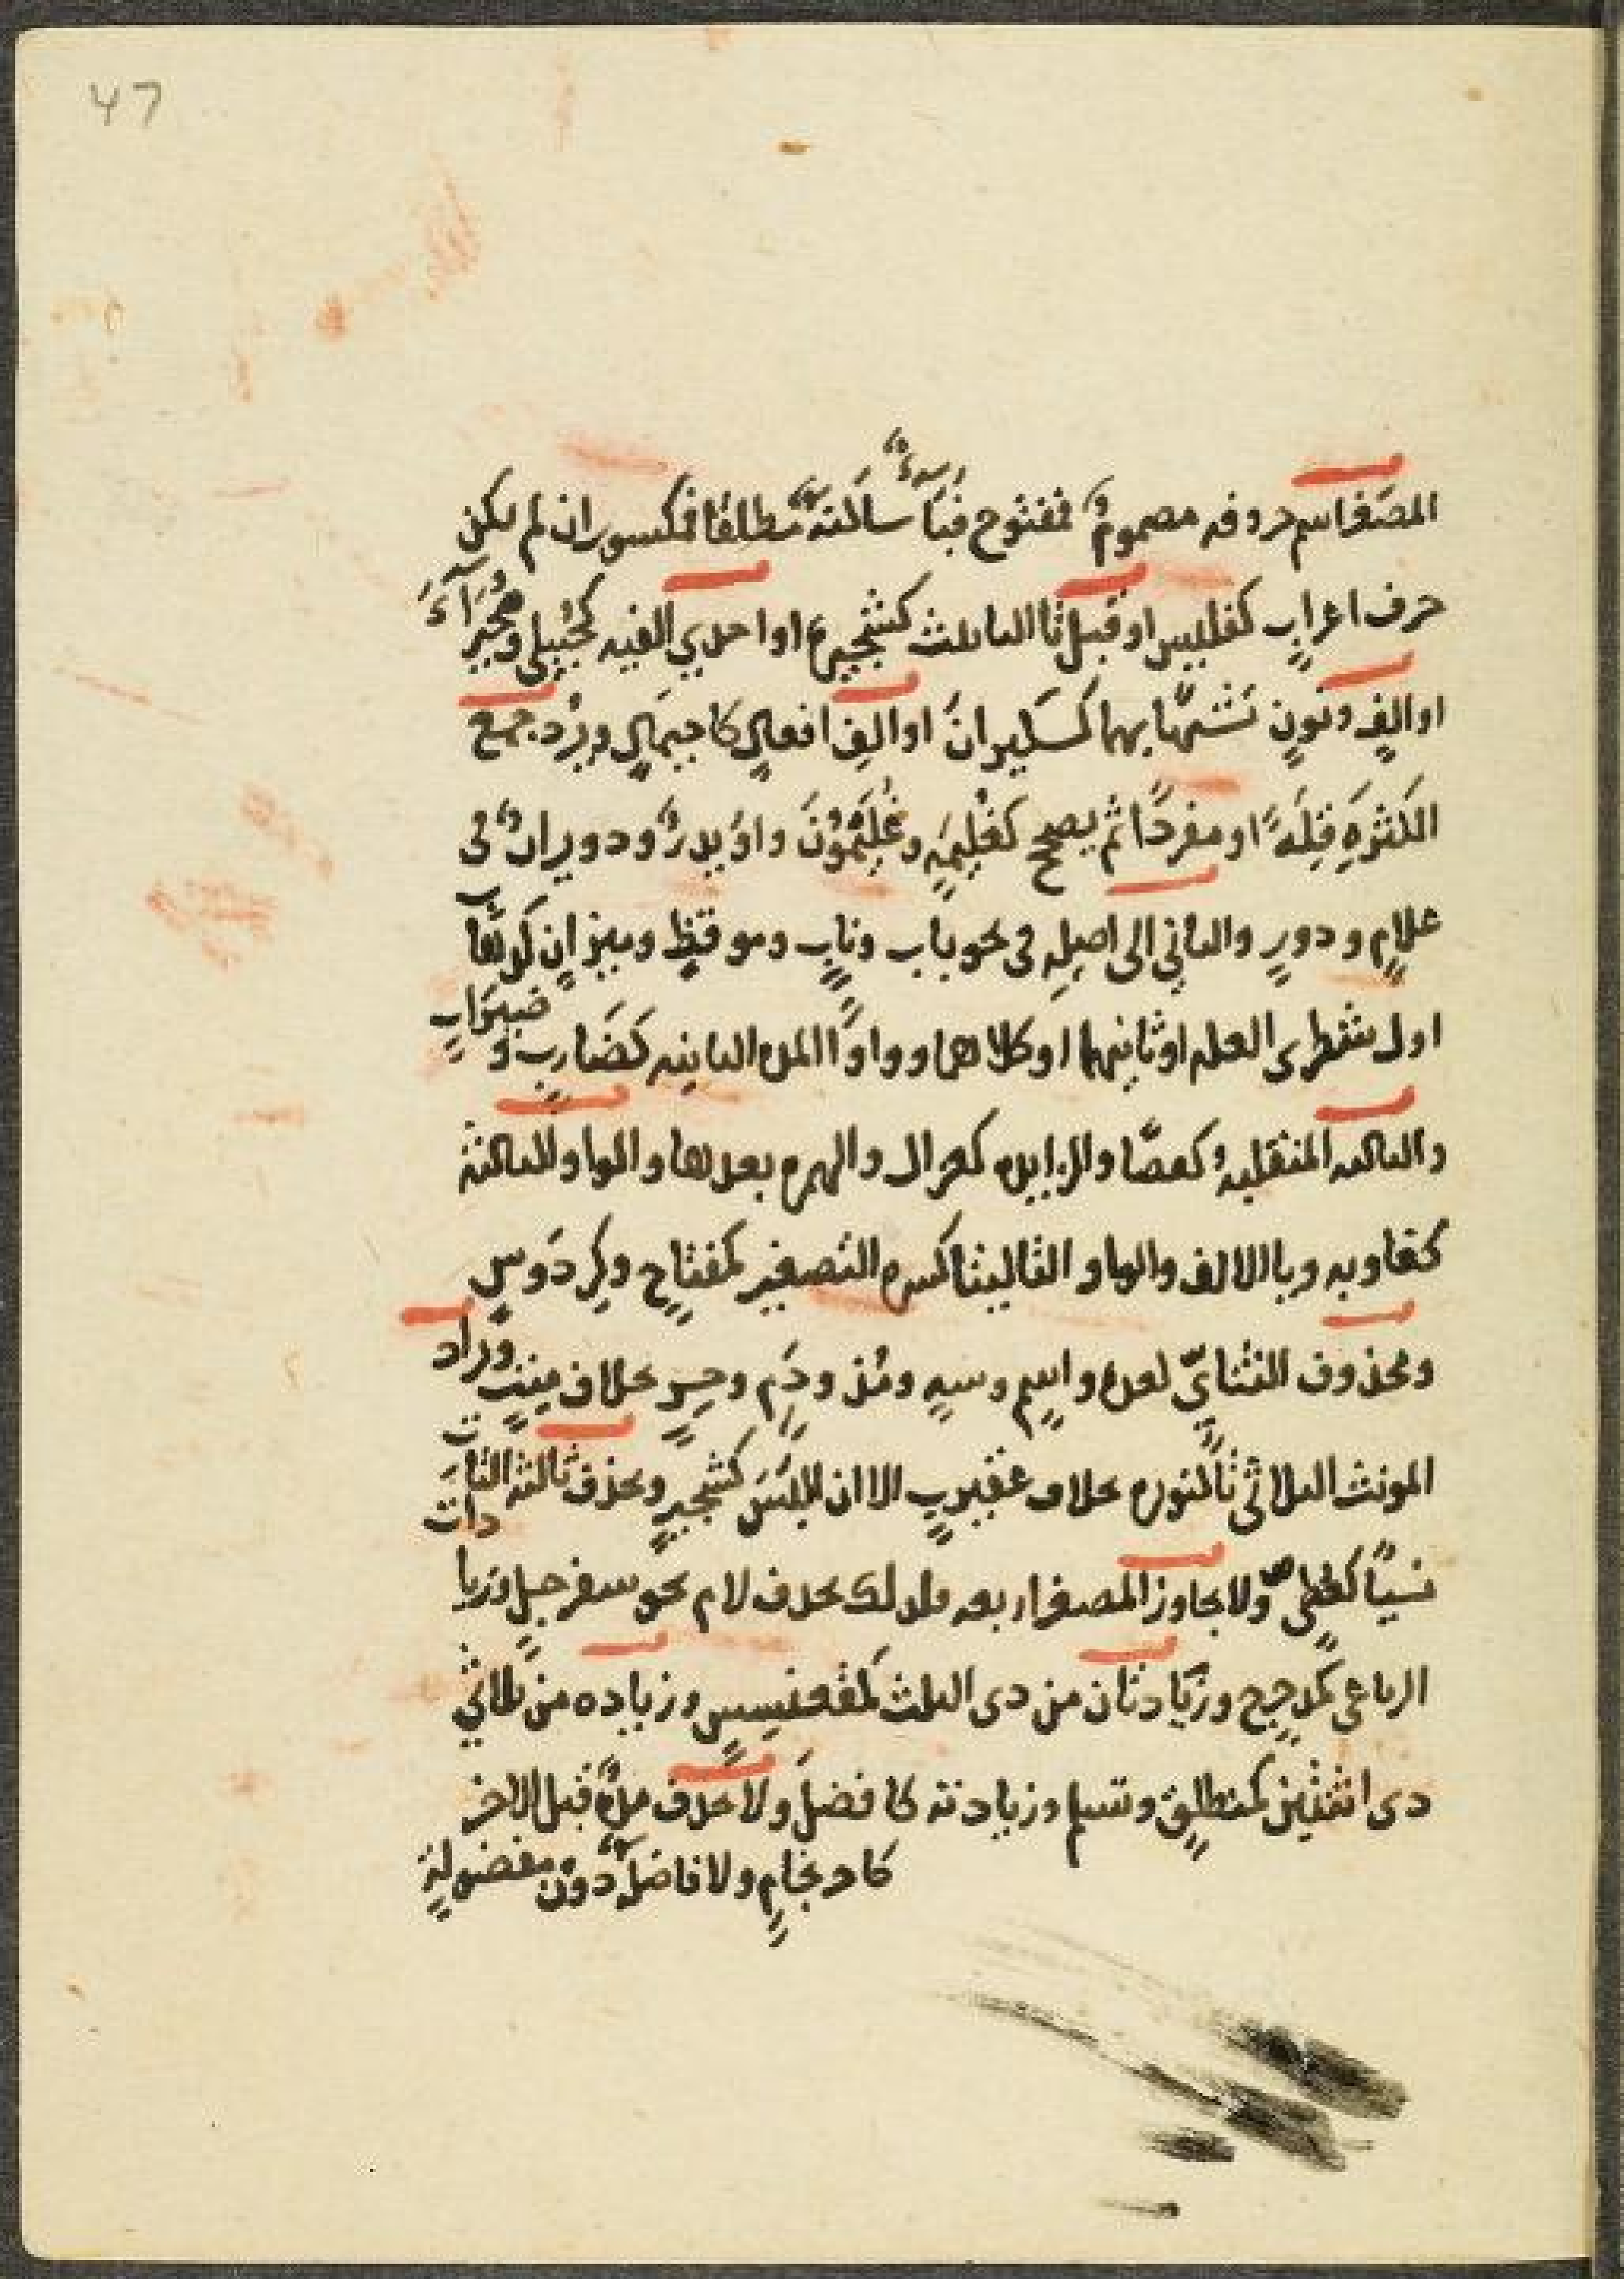 47
المصغر اسم حروفه مضمومٌ فمفتوح فيا ساكنةٌ مطلقا فمكسور ان لم يكن
حرف اعرابٍ كفليس او قبل تا التانيث كشجيرة او احدى الفيه كحُبيلى وحُميرَآءَ
او الفٍ ونونٍ تشبَّها بهما كسكيرانَ او الفِ افعالٍ كاجيمالٍ ويُرد جمع
الكثرةِ قِلةً او مفردًا ثم يصحح كغُليمةٍ وغُليّمُونَ وادُيدرٌ ودويراتٌ فى
غلامٍ ودورٍ والثاني الى اصلِهِ فى نحو بابٍ ونابٍ وموقظٍ وميزانٍ كردّها
اول شطرى العله او ثانيهما او كلاهما وواوًا المده الثانيه كضَاربٍ وضيرَابٍ
وياء المنقلبه كعصًا والزايده كغزال والهمزه بعدها والواو الثالثة
كمعاويه ويا الالف والواو التاليتا كسرة التصغير كمفتاحٍ وكردَوسٍ
ومحذوف الثنائىّ لعده واسمٍ وسهٍ ومُذ ودَمٍ وحِرٍ بخلاف ميتٍ ويُزاد
المونث الثلاثى تا كنويره بخلاف عقيربٍ الا ان يلبَسَ كشجيرٍ ويحذف ثالثة الياءَات
نسيًا كعُطىٍّ ولا يجاوز المصغر اربعه فلذلك يحذف لام نحو سفرجلٍ وزيادات
الرباعى كمدحرجٍ وزيَادتان من ذى الثلث كمقعنسِسٍ وزياده من ثلاثي
ذى اثنتين كمنطلقٍ وتسلم زيادته كافضلَ ولا تحذف مدةٌ قبل الاخر
كادغامٍ ولا فاضلٌ دون مفضولةٍ